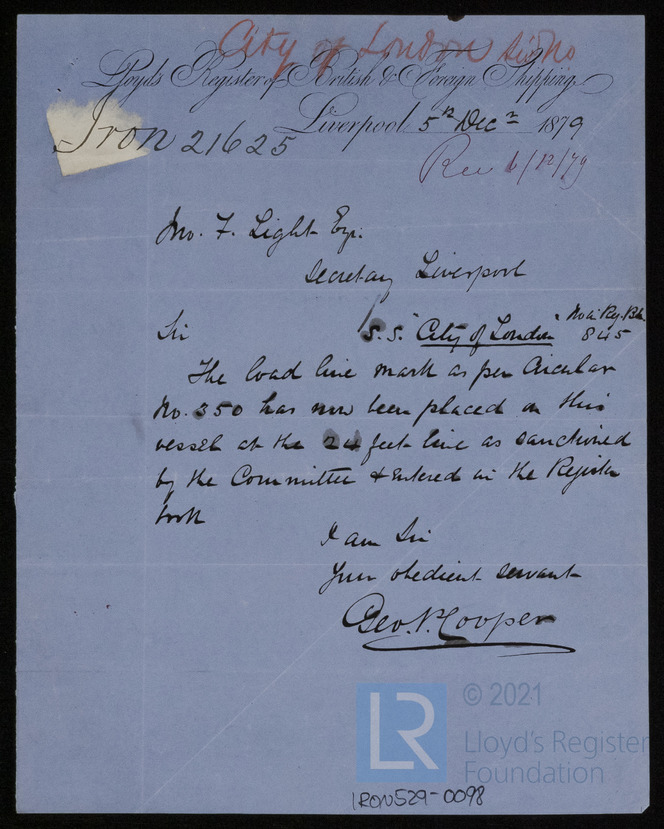 City of London
Lloyd's Register of British & Foreign Shipping
Liverpool 5th Decr 1879
Iron 21625
Rec 6/12/79
Jno. F. Light Esq.
Secretary Liverpool
Sir S.S. "City of London" No in Reg. Bk. 845
The load line mark as per Circular
No. 350 has now been placed on this
vessel at the 24 feet line as sanctioned
by the Committee & Entered in the Register
book
I am Sir
Your obedient servant
Geo. P. Cooper
LR © 2021
Lloyd's Register
Foundation
IRON529-0098